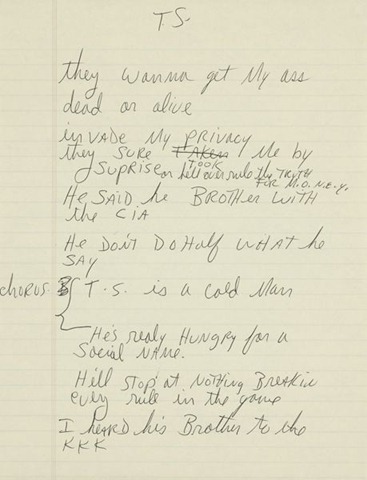 T.S.
they wanna get My ass
dead or alive
inVADE My PRIVACY
they SURE TAKEN TOOK Me by
SUPRISE or hell over rule the TRUTH
FOR M.O.N.E.Y.
He SAID he BROTHER WITH
the CIA
He DON'T DO Half WHAT he
SAY
CHORUS T.S. is a cold Man
He's realy HUNGRY for a
Social NAME.
He'll STOP at NOTHING BREAKIN
every rule in the game
I heard his Brother to the
KKK